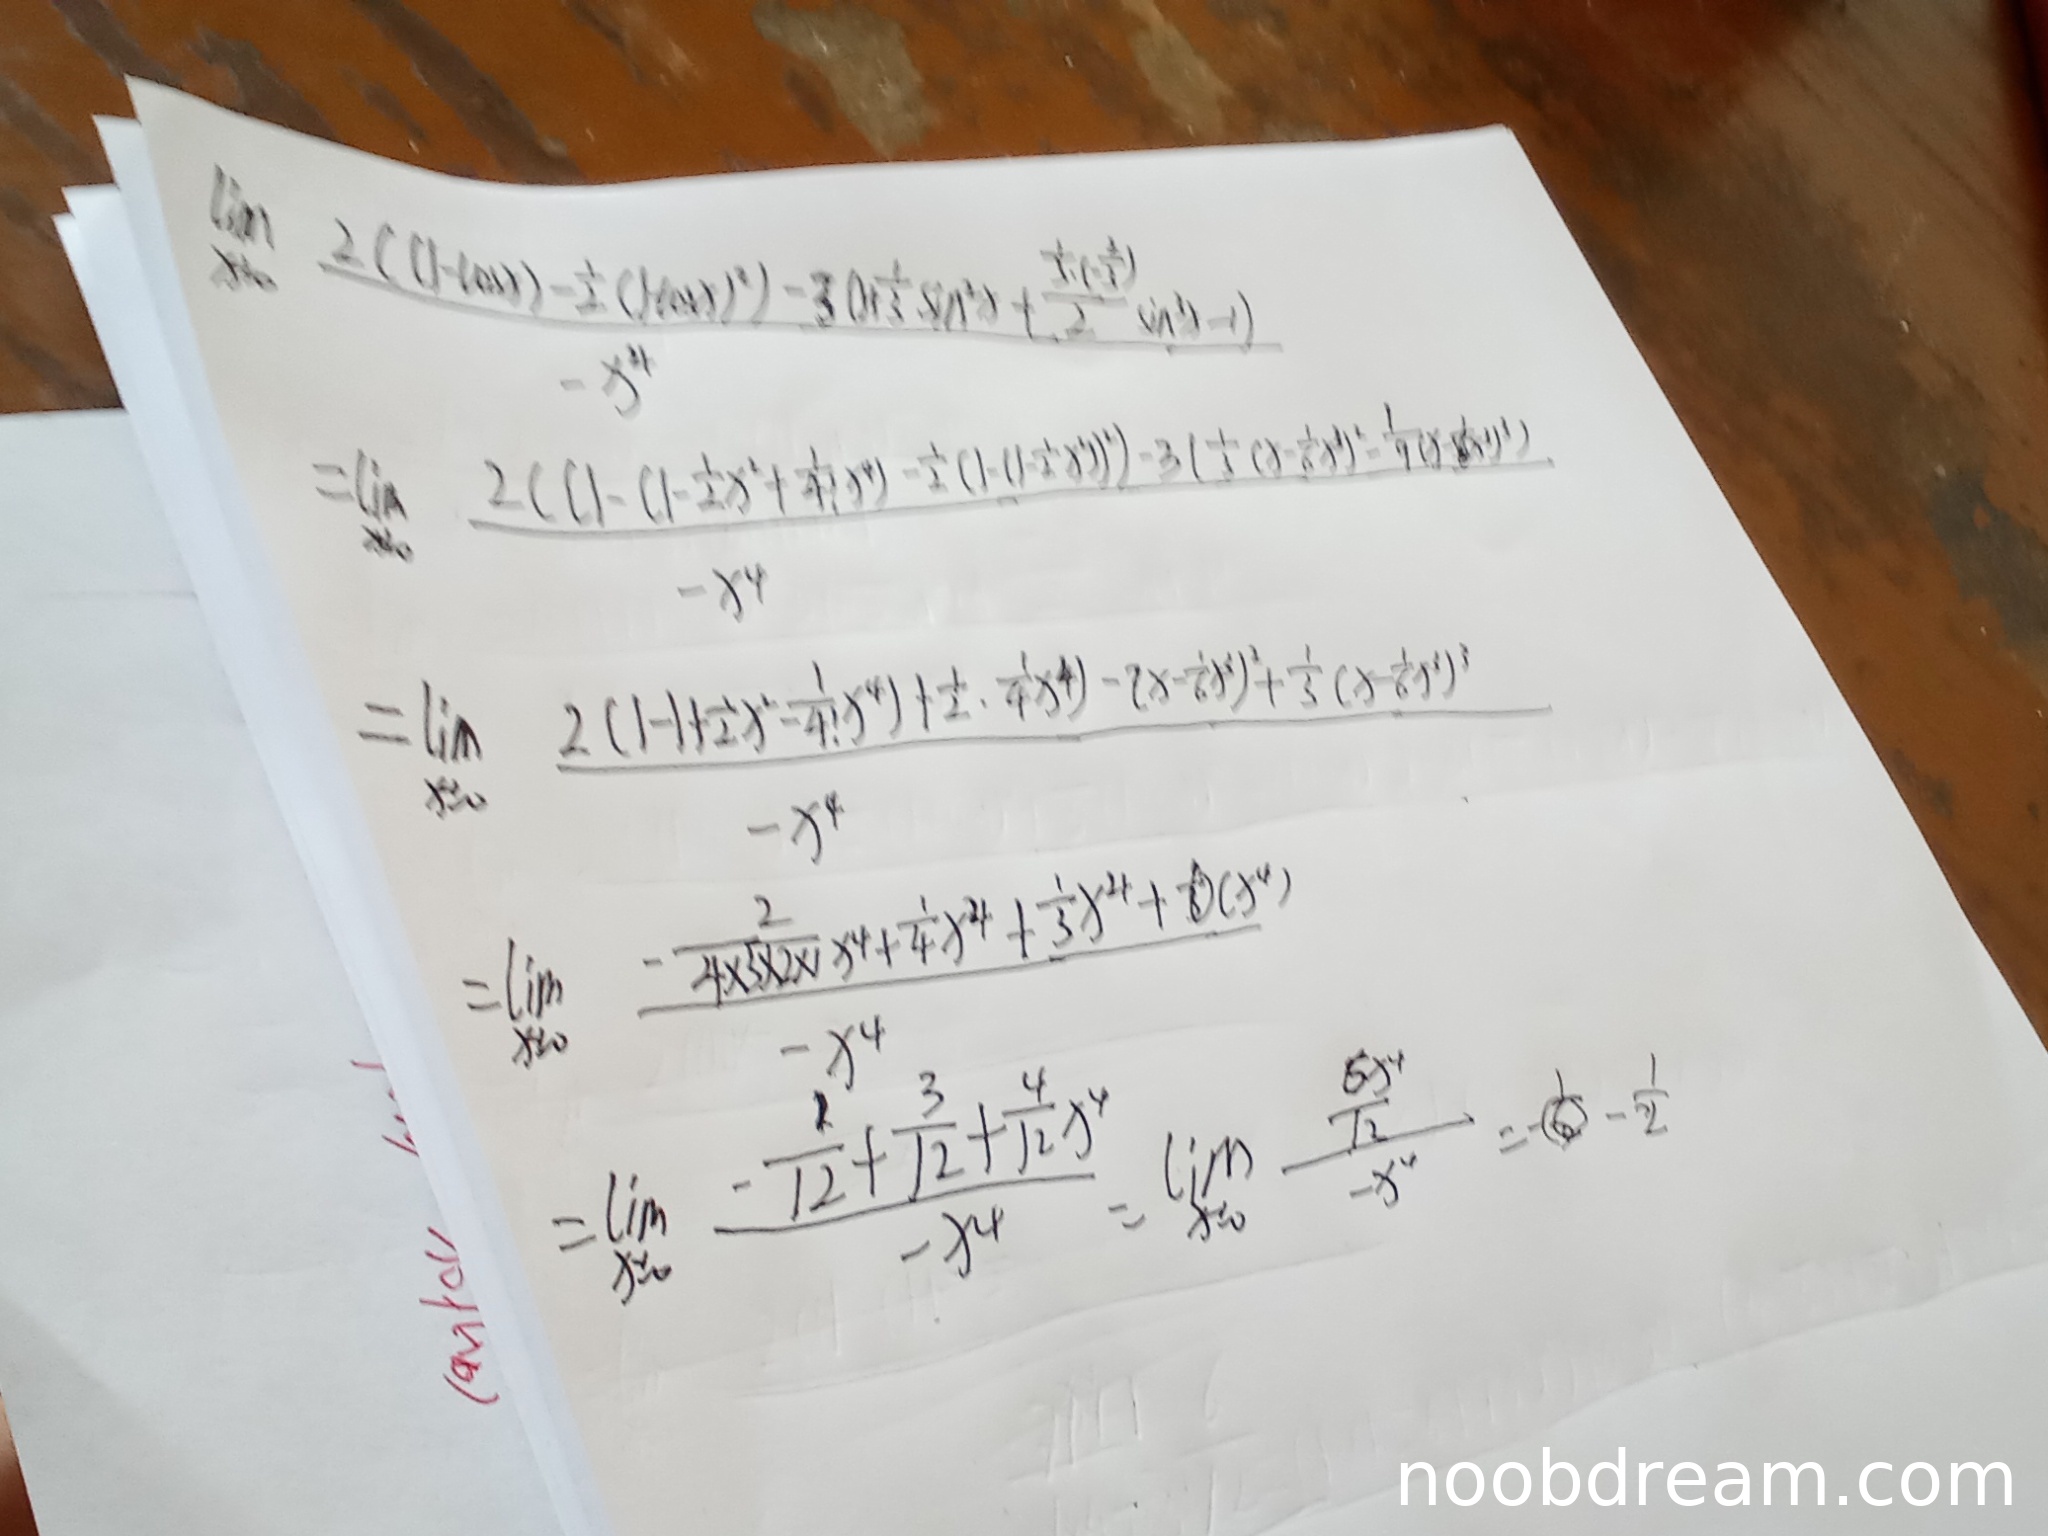 lim x→0 2((1-cosx)-1/2(1-cosx)²)-3(1+1/3 sin²x+(1/3·(-2/3))/2 sin⁴x-1) / -x⁴
=lim x→0 2((1-(1-1/2x²+1/4!x⁴)-1/2(1-(1-1/2x²))²)-3(1/3(x-1/6x³)²-1/9(x- / -x⁴
=lim x→0 2(1-1+1/2x²-1/4!x⁴)+1/2·1/4x⁴)-(x-1/6x³)²+1/3(x-1/6x³)³ / -x⁴
=lim x→0 -2/(4×3×2×1)x⁴+1/4x⁴+1/3x⁴+ (x⁴) / -x⁴
=lim x→0 -1/12+3/12+4/12x⁴ / -x⁴ = lim x→0 6x⁴/12 / -x⁴ = -1/2
cantor
noobdream.com